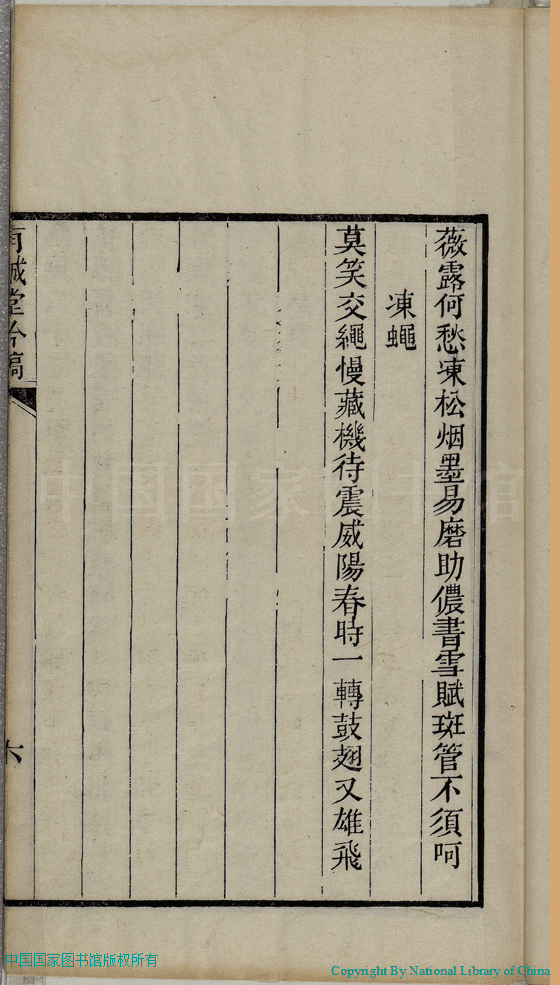 薇露何愁凍松烟墨易磨助儂書雪賦斑管不須呵
凍蠅
莫笑交繩慢藏機待震威陽春時一轉鼓翅又雄飛
誠堂吟稿
六
中国国家图书馆
中国国家图书馆版权所有
Copyright By National Library of China